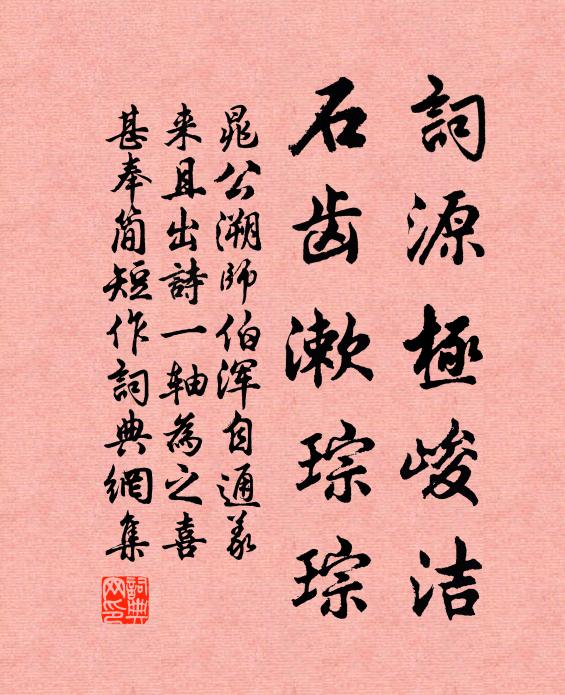 詞源極峻洁
石齿漱琮琮
晁公溯師伯浑自通義
来且出詩一轴為之喜
甚奉简短作詞典網集
詞典網印